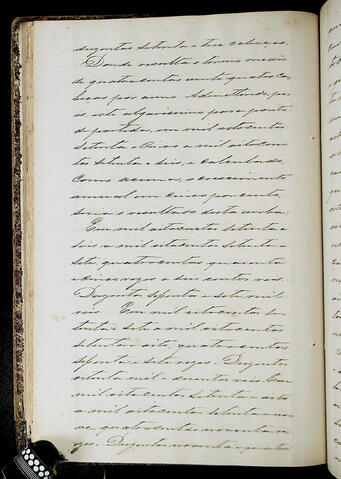 duzentas setenta e tres cabeças.
Donde resulta o termo medio
de quatrocentas vinte quatro ca
beças por anno. Admittindo, po
is, este algarismo para ponto
de partida, em mil oitocentos
setenta e cinco a mil oitocen
tos setenta e seis, e calculado,
como acima, o crescimento
annual em cinco por cento
será o resultado desta verba:
Em mil oitocentos setenta e
seis a mil oitocentos setenta e
sete, quatrocentas quarenta
e cinco rezes a seis contos reis.
Duzentos setenta e sete mil
reis. Em mil oitocentos se
tenta e sete a mil oitocentos
setenta e oito, quatrocentas
setenta e sete rezes. Duzentos
oitenta mil e duzentos reis. Em
mil oitocentos setenta e oito
a mil oitocentos setenta e no
ve, quatrocentas noventa
rezes. Duzentos noventa e quatro